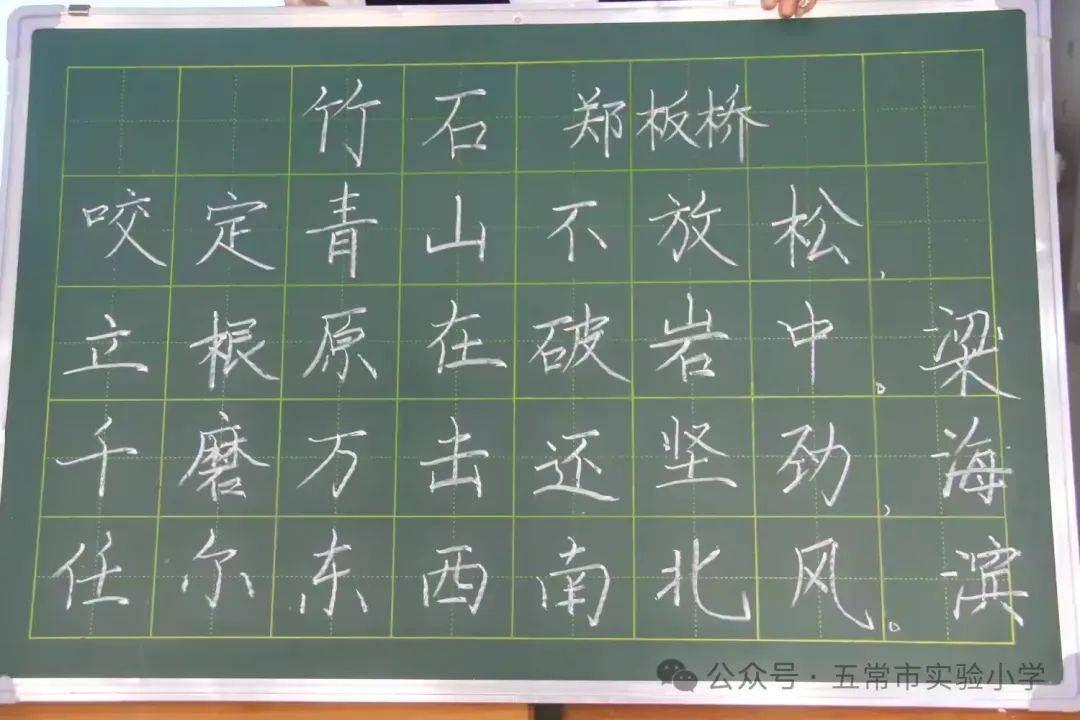 竹石 郑板桥
咬定青山不放松,
立根原在破岩中。
千磨万击还坚劲,
任尔东西南北风。
梁海滨
公众号·五常市实验小学